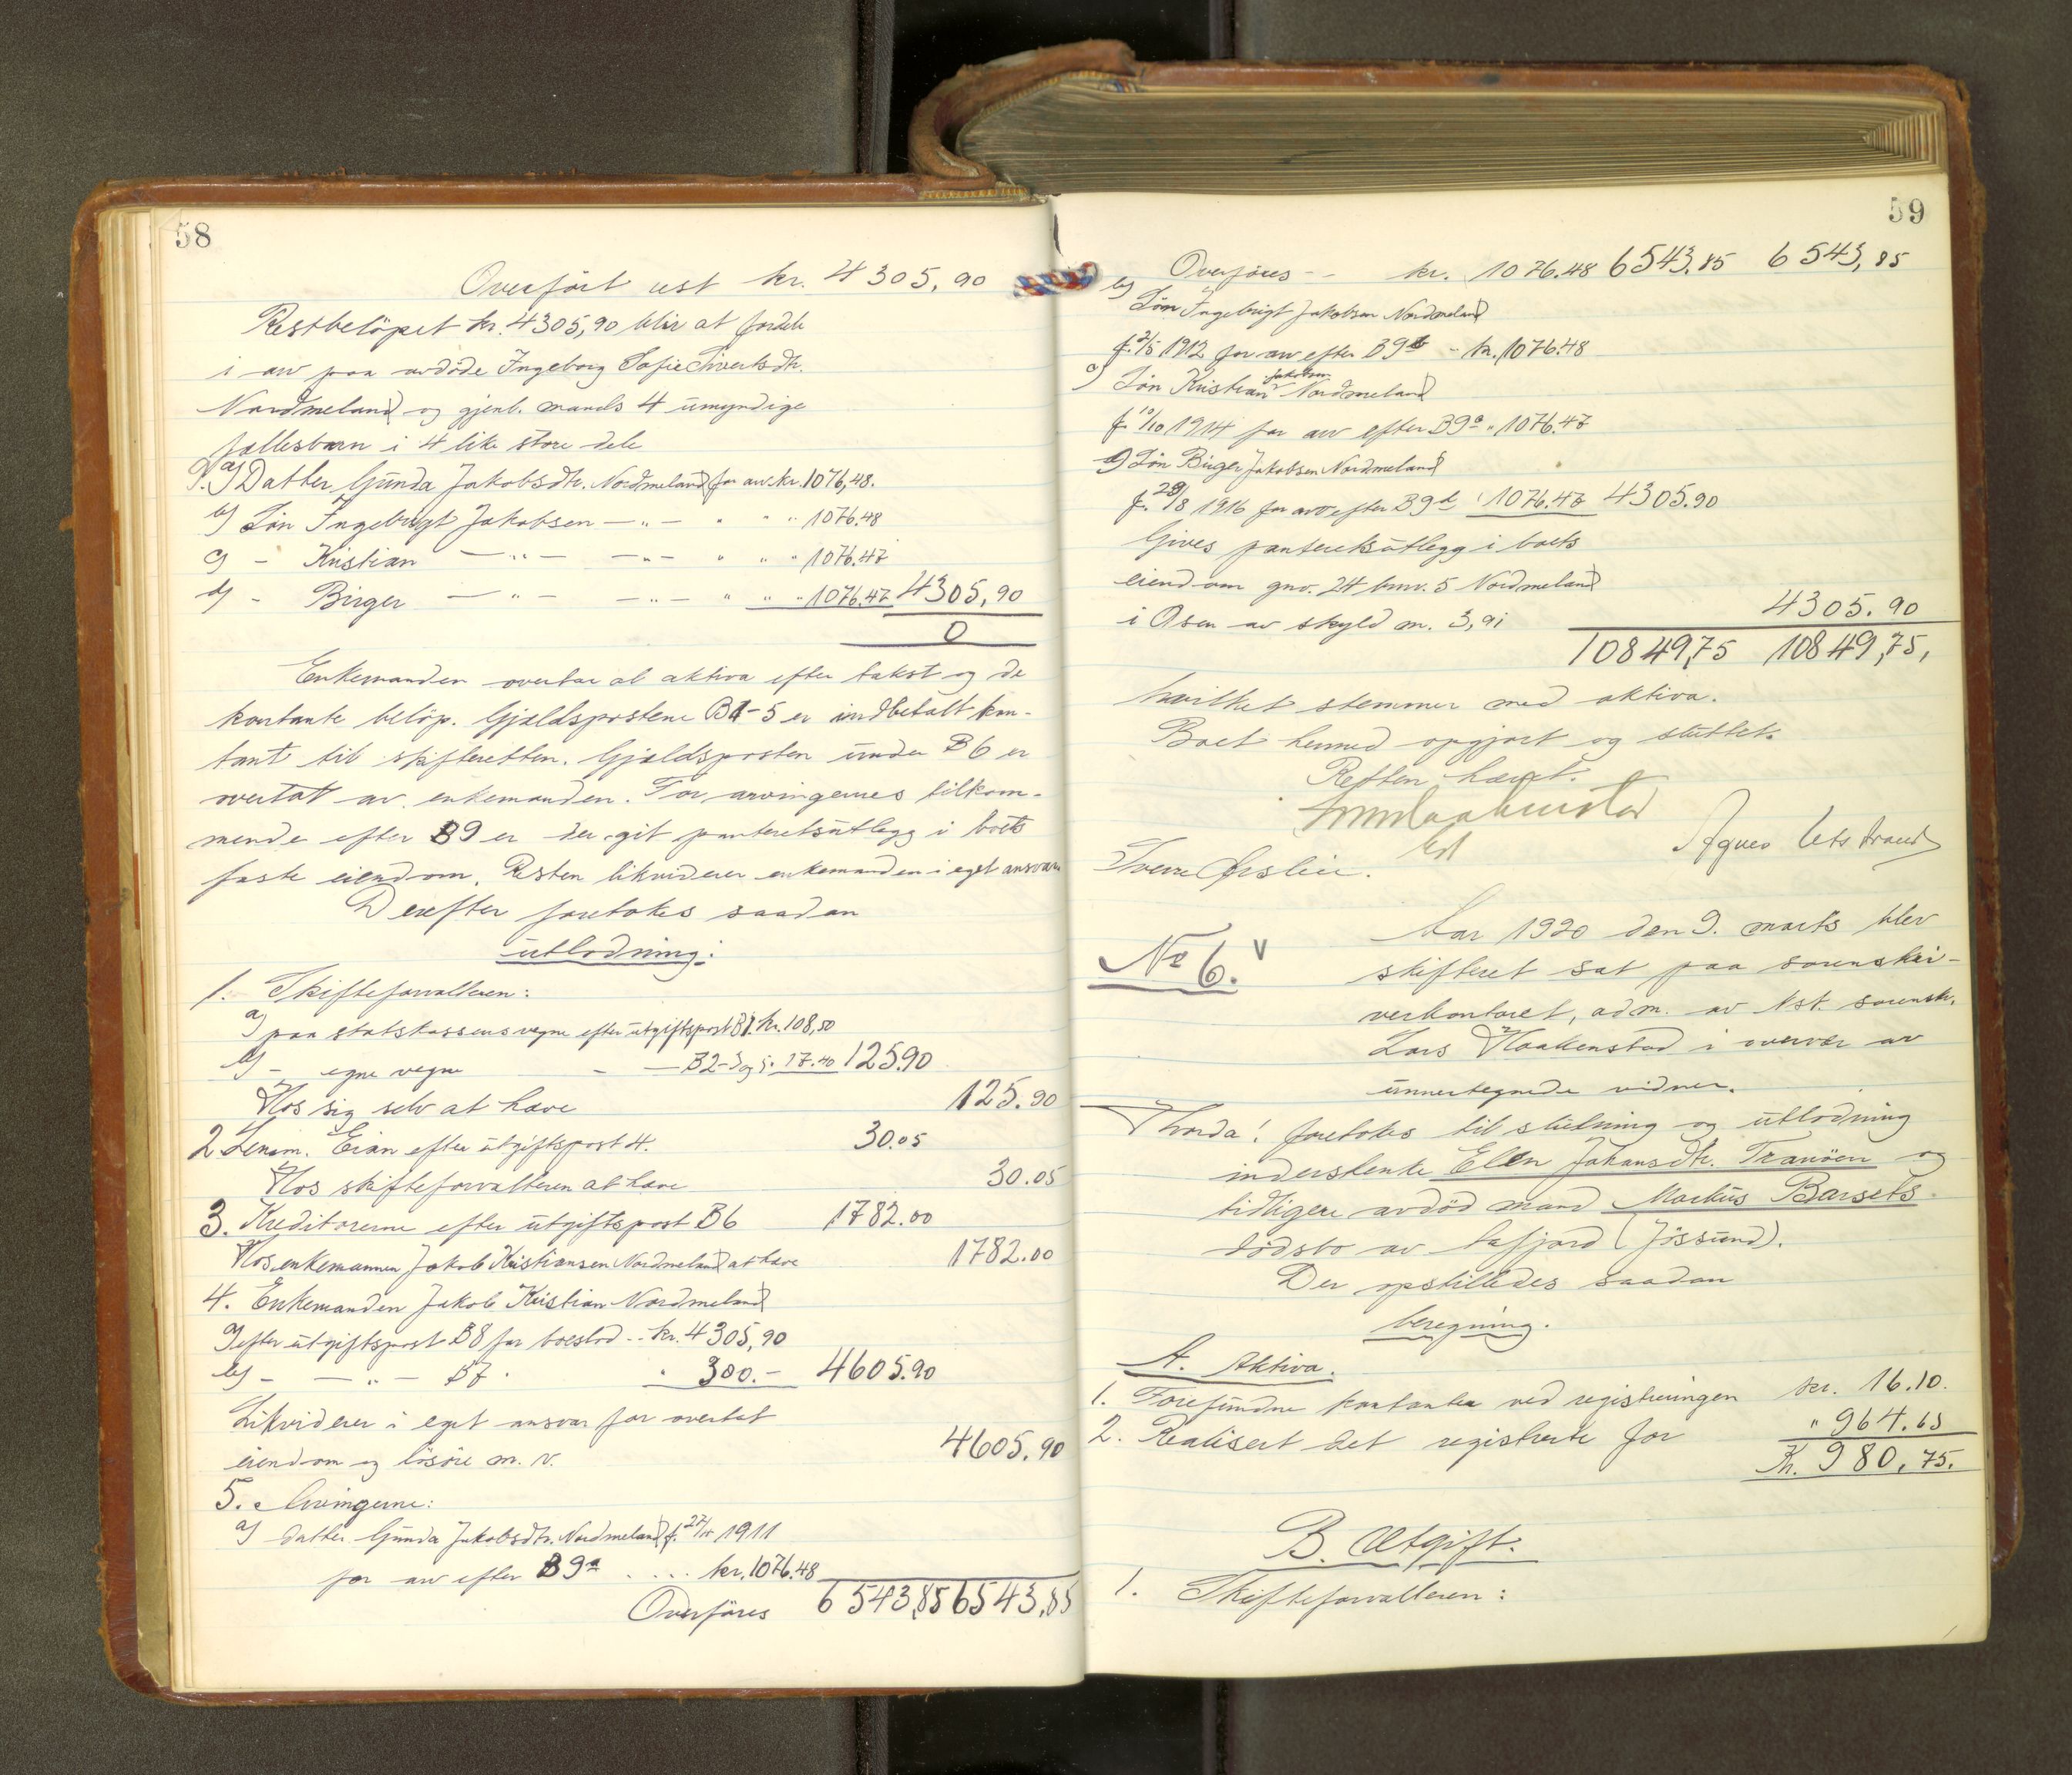 58
Overført rest kr. 4305,90
Restbeløpet kr. 4305,90 blir at fordele
i arv paa avdøde Ingeborg Sofie Sivertsdtr.
Nordmeland og gjenl. mands 4 umyndige
fællesbarn i 4 like store dele
9. a) Datter Gunda Jakobsdtr. Nordmeland for arv kr. 1076,48.
b) Søn Ingebrigt Jakobsen — " — " " " 1076.48
c) - Kristian — " — — " — " " " 1076.47
d) - Birger — " — — " — " " " 1076.47 4305,90
0
Enkemanden overtar al aktiva efter takst og de
kontante beløp. Gjældspostene B1-5 er indbetalt kon-
tant til skifteretten. Gjældsposten under B6 er
overtat av enkemanden. For arvingernes tilkom-
mende efter B9 er der git panteretsutlegg i boets
faste eiendom. Resten likviderer enkemanden i eget ansvar
Derefter foretokes saadan
utlodning:
1. Skifteforvalteren:
a) paa statskassens vegne efter utgiftspost B1. kr. 108,50
b) - egne vegne - — B2-3 og 5. 17.40 125.90
Hos sig selv at have 125.90
2 Lensm. Eian efter utgiftspost 4. 30.05
Hos skifteforvalteren at have 30.05
3. Kreditorerne efter utgiftspost B6 1782.00
Hos enkemannen Jakob Kristiansen Nordmeland at have 1782.00
4. Enkemanden Jakob Kristian Nordmeland
a) efter utgiftspost B8 for boeslod -- kr. 4305,90
b) - — " — B7 . " 300.- 4605.90
Likviderer i eget ansvar for overtat
eiendom og løsøre m. v. 4605.90
5. Arvingerne:
a) datter Gunda Jakobsdtr. Nordmeland f. 1911
for arv efter B9a .... kr. 1076.48
Overføres 6543,85 6543,85
59
Overføres -- kr. 1076.48 6543,85 6543,85
b) Søn Ingebrigt Jakobsen Nordmeland
f. 2/5 1912 for arv efter B9b - kr. 1076.48
c) Søn Kristian Jakobsen Nordmeland
f. 10/10 1914 for arv efter B9c " 1076.47
d) Søn Birger Jakobsen Nordmeland
f. 29/8 1916 for arv efter B9d " 1076.47 4305.90
Gives panteretsutlegg i boets
eiendom gnr. 24 bnr. 5 Nordmeland
i Osen av skyld m. 3,91 4305.90
10849,75 10849,75,
hvilket stemmer med aktiva.
Boet hermed opgjort og sluttet.
Retten hævet.
Sverre Ørslien. Agnes
No 6. v
Aar 1920 den 9. marts blev
skifteret sat paa sorenskri-
verkontoret, adm. av kst. sorenskr.
Lars Haakenstad i overvær av
unnertegnede vidner.
Hvorda! foretokes til slutning og utlodning
inderstenke Ellen Johansdtr. Tranøen og
tidligere avdød mand Markus Barsets
dødsbo av Aafjord (Jøssund).
Der opstilledes saadan
beregning.
A. Aktiva.
1. Forefundne kontanter ved registreringen kr. 16.10.
2. Realisert det registrerte for " 964.65
Kr. 980.75.
B. Utgift.
1. Skifteforvalteren: